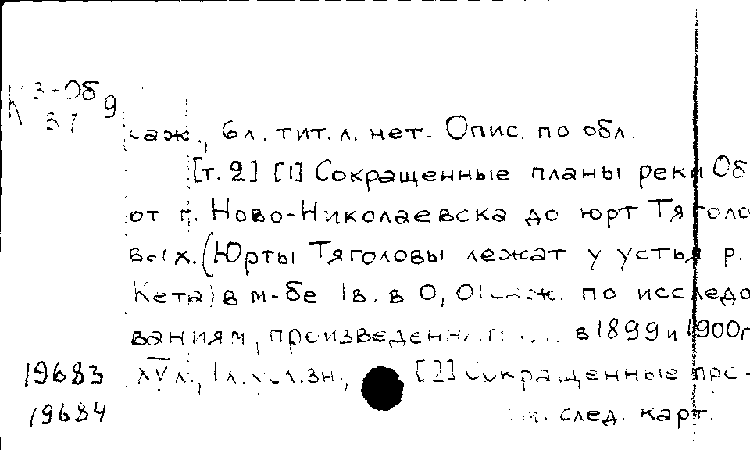 К 3-Об 9
37
саж., 6 л. тит. л. нет. Опис. по обл.
[т. 2] [1] Сокращенные планы реки Об
от г. Ново-Николаевска до юрт Тяголо
вых. (Юрты Тяголовы лежат у устья р.
Кета) в м-бе 1 в. в 0,01 саж. по исследо
ваниям, произведенным в 1899 и 1900 г
19683 XV л., 1 л. зн., [2] Сокращенные про-
19684 см. след. карт.